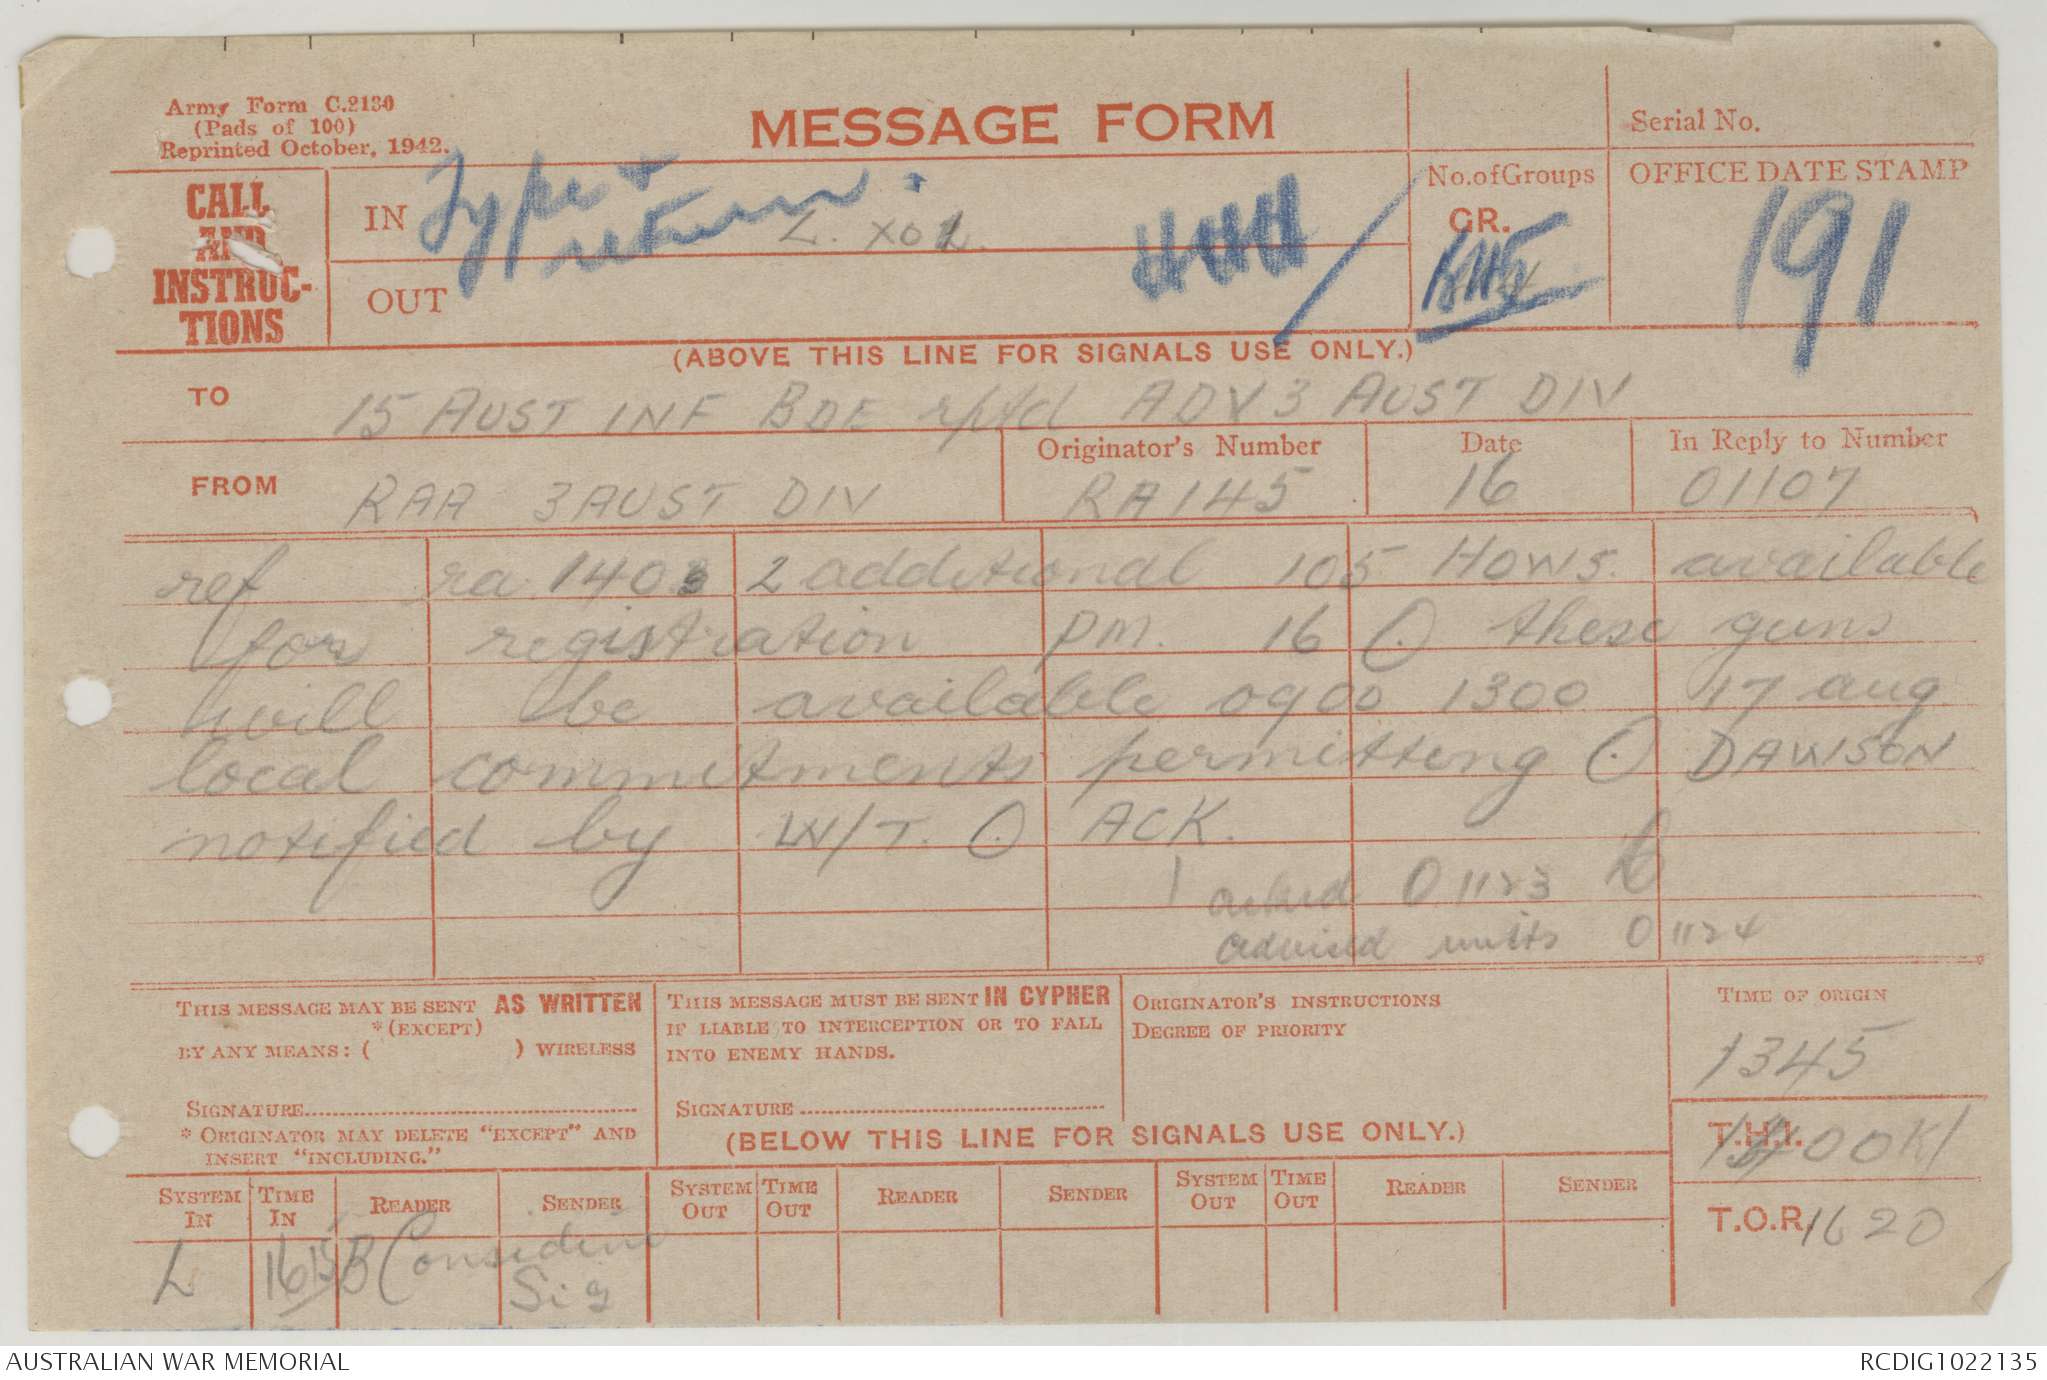 Army Form C.2130
(Pads of 100)
Reprinted October, 1942.
MESSAGE FORM
Serial No.
CALL
AND
INSTRUC-
TIONS
IN
Type &
return.
L. XOL.
OUT
No. of Groups
GR.
OFFICE DATE STAMP
191
(ABOVE THIS LINE FOR SIGNALS USE ONLY.)
TO
15 AUST INF BDE rptd ADV 3 AUST DIV
FROM
RAA 3 AUST DIV
Originator's Number
RA145
Date
16
In Reply to Number
01107
ref ra 140 2 additional 105 HOWS. available
for registration PM. 16 (.) these guns
will be available 0900 1300 17 aug
local commitments permitting (.) DAWSON
notified by W/T. (.) ACK.
acked 01123
advised units 01124
THIS MESSAGE MAY BE SENT AS WRITTEN
*(EXCEPT)
BY ANY MEANS: ( ) WIRELESS
SIGNATURE
* ORIGINATOR MAY DELETE "EXCEPT" AND
INSERT "INCLUDING."
THIS MESSAGE MUST BE SENT IN CYPHER
IF LIABLE TO INTERCEPTION OR TO FALL
INTO ENEMY HANDS.
SIGNATURE
ORIGINATOR'S INSTRUCTIONS
DEGREE OF PRIORITY
TIME OF ORIGIN
1345
(BELOW THIS LINE FOR SIGNALS USE ONLY.)
T.H.I.
T.O.R. 1620
SYSTEM IN
TIME IN
READER
SENDER
SYSTEM OUT
TIME OUT
READER
SENDER
SYSTEM OUT
TIME OUT
READER
SENDER
L 1615 B Considine
Sig
AUSTRALIAN WAR MEMORIAL
RCDIG1022135